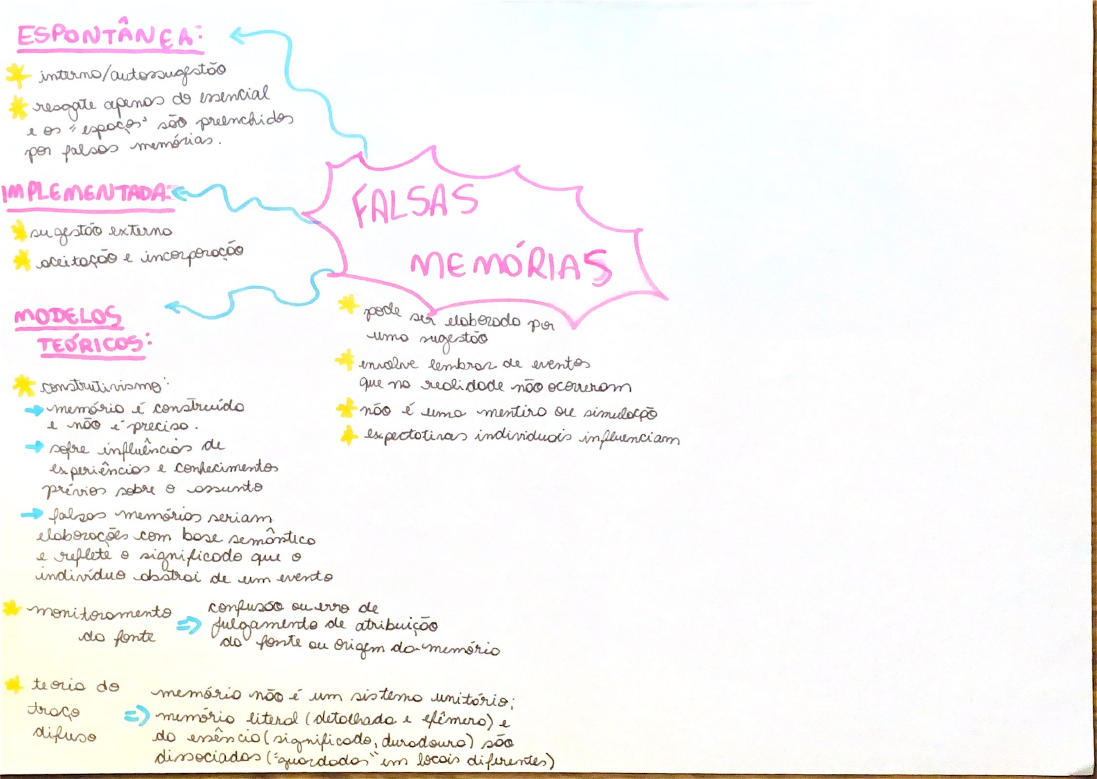 ESPONTÂNEA:
interna/autossugestão
resgate apenas do essencial
e os "espaços" são preenchidos
por falsas memórias.
IMPLEMENTADA:
sugestão externa
aceitação e incorporação
FALSAS
MEMÓRIAS
pode ser elaborada por
uma sugestão
envolve lembrar de eventos
que na realidade não ocorreram
não é uma mentira ou simulação
expectativas individuais influenciam
MODELOS
TEÓRICOS:
construtivismo:
memória é construída
e não é precisa.
sofre influências de
experiências e conhecimentos
prévios sobre o assunto
falsas memórias seriam
elaborações com base semântica
e reflete o significado que o
indivíduo abstrai de um evento
monitoramento
da fonte
confusão ou erro de
julgamento de atribuição
da fonte ou origem da memória
teoria do
traço
difuso
memória não é um sistema unitário;
memória literal (detalhada e efêmera) e
da essência (significado, duradoura) são
dissociadas ("guardadas" em locais diferentes)